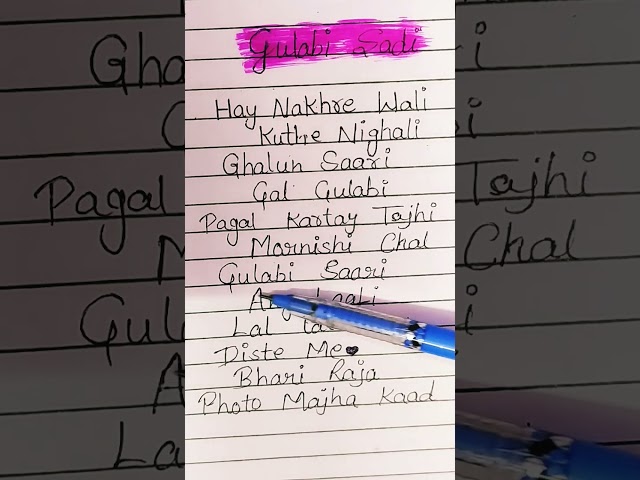 Gulabi Sadi
Hay Nakhre Wali
Kuthe Nighali
Ghalun Saari
Gal Gulabi
Pagal Kartay Tajhi
Mornishi Chal
Gulabi Saari
Lal
Diste Me
Bhari Raja
Photo Majha Kaad